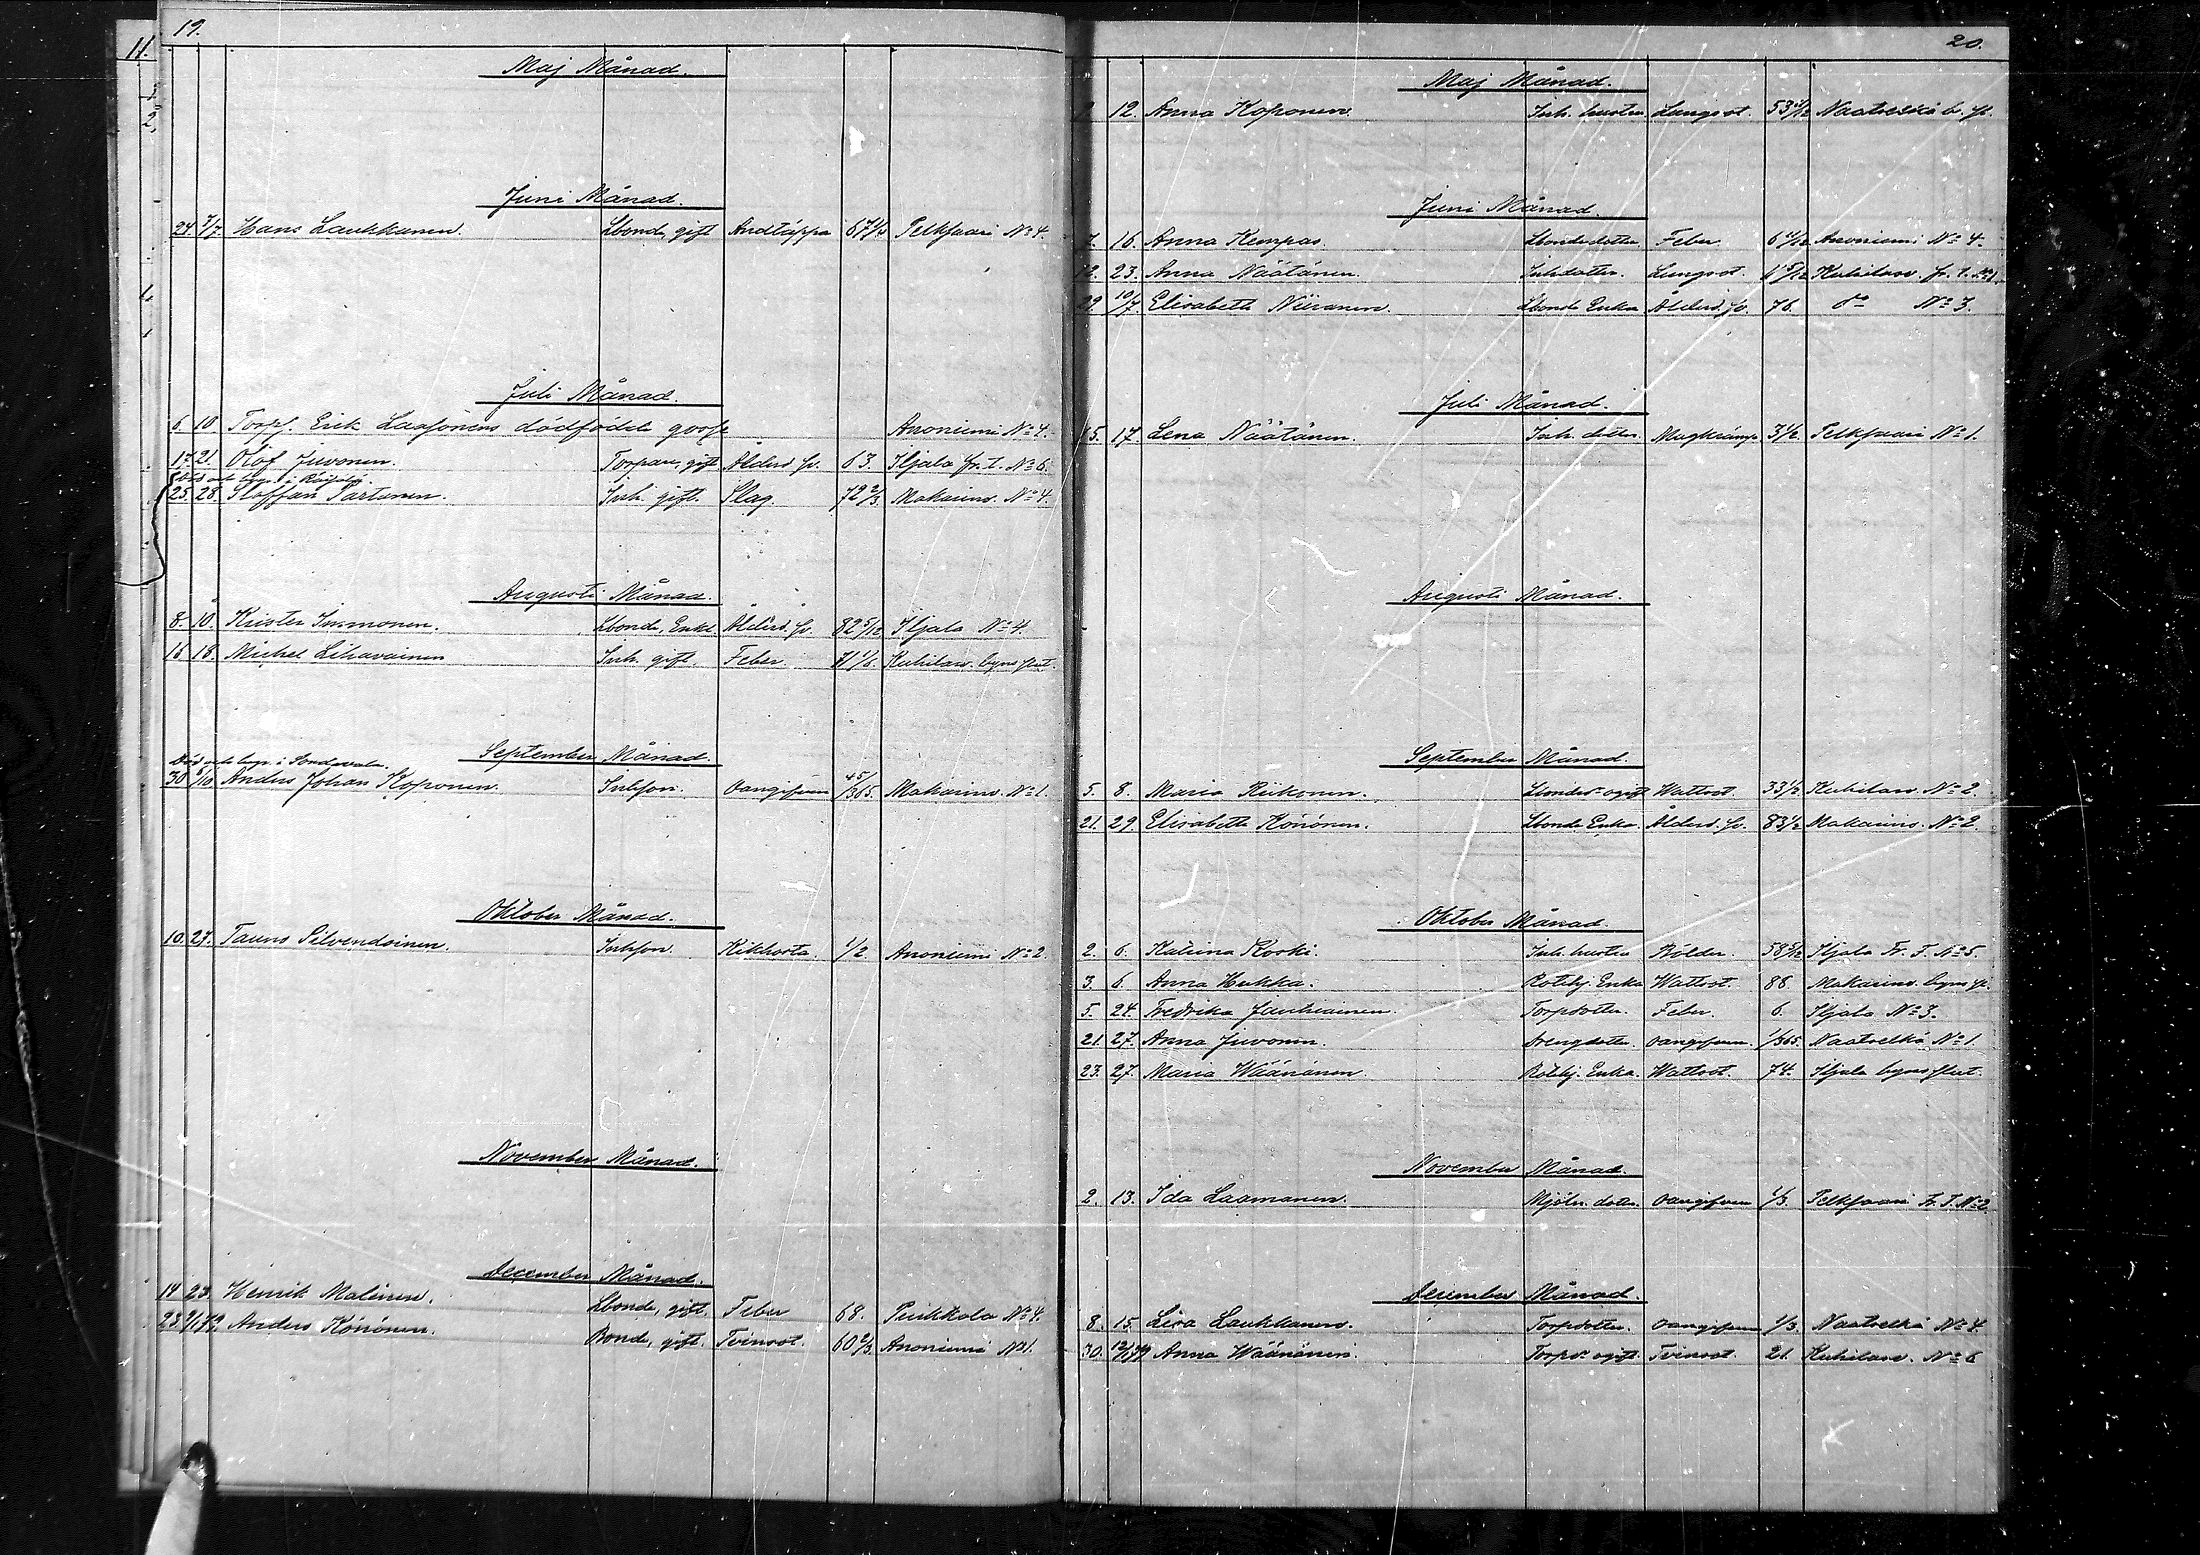 19.
Maj Månad.
Juni Månad.
24. 7/7. Hans Laukkanen. Lbonde, gift Andtäppa 67 1/12 Pelkjaari No 4.
Juli Månad.
6. 10. Torp. Erik Laasonens dödfödde gosse Anoniemi No 4.
17. 21. Olof Juvonen. Torpare, gift Ålderd. sv. 63. Iljala fr. t. No 6.
25. 28. Staffan Partanen. Inh. gift. Slag. 72 2/3. Makarins. No 4.
Augusti Månad.
8. 10. Krister Immonen. Lbonde, Enkl. Ålderd. sv. 82 5/12 Iljala No 4.
16 18. Michel Lihavainen Inh. gift Feber. 71 1/6. Kuhilasv. byns fast.
September Månad.
Död och begr. i Sordavala.
30 6/10 Anders Johan Koponen. Inhson. Oangifven 45/365. Makarins. No 1.
Oktober Månad.
10. 27. Tauno Silvendoinen. Inhson. Kikhosta. 1/2. Anoniemi No 2
November Månad.
December Månad.
14 23. Henrik Malinen. Lbonde, gift. Feber 68. Puikkola No 4.
Anders Könönen. Bonde, gift. Tvinsot. 60 2/3. Anoniemi No 1.
20.
Maj Månad.
12. Anna Koponen. Inh. hustru Lungsot. Naatselkä b. f.
Juni Månad.
7. 16. Anna Kempas. Lbondedotter Feber. Anoniemi No 4.
12. 23. Anna Näätänen. Inhdotter. Lungsot. Kuhilasv. fr. t. No 1.
29. 10/7. Elisabeth Niiranen. Lbonde Enka Ålderd. sv. 76. do No 3.
Juli Månad.
15. 17. Lena Näätänen. Inh. dotter. Magkramp. 3 1/2. Pelkjaari No 1.
Augusti Månad.
September Månad.
5. 8. Maria Riikonen. ogift Wattsot. 33 1/2. Kuhilasv. No 2.
21. 29. Elisabeth Könönen. Lbonde Enka. Ålderd. sv. 83 1/2 Makarins. No 2.
Oktober Månad.
2. 6. Katrina Koski. Inh. hustru Bölder. 58 5/12 Iljala Fr. T. No 5.
3. 6. Anna Hukka. Rotehj. Enka Wattsot. 88 Makarins. byns f.
5. 24. Fredrika Jauhiainen. Torpdotter. Feber. 6. Iljala No 3.
21. 27. Anna Juvonen. Drengdotter. Oangifven. 1/365. Naatselkä No 1.
23. 27. Maria Wäänänen Rotehj. Enka. Wattsot. 74. Iljala byns fast.
November Månad.
2. 13. Ida Laamanen. Mjöln. dotter Oangifven 1/3. Pelkjaari Fr. T. No 2.
December Månad.
8. 15. Lisa Laukkanen. Torpdotter. Oangifven 1/3. Naatselkä No 4.
30. Anna Wäänänen. Torpd. ogift. Tvinsot. 21. Kuhilasv. No 6